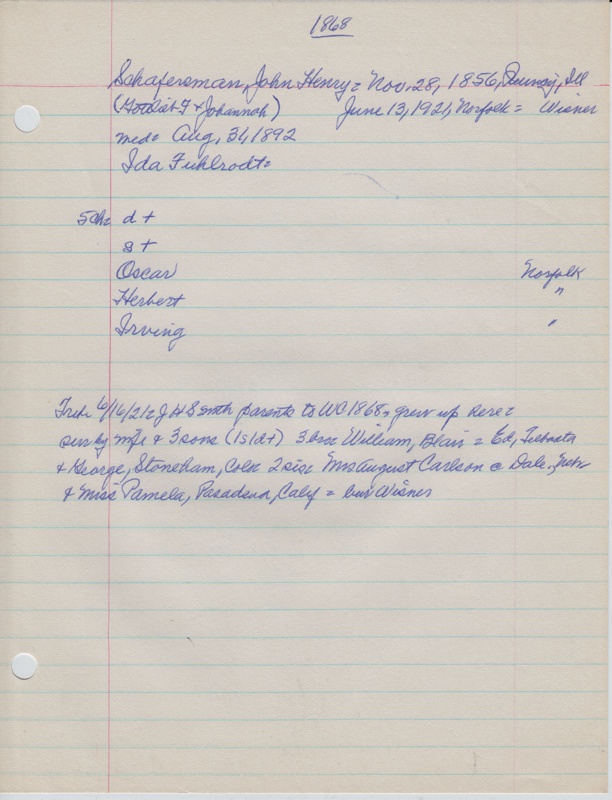 1868
Schafersman, John Henry = Nov. 28, 1856, Quincy, Ill
(Gottlieb F + Johannah) June 13, 1921, Norfolk = Wisner
md = Aug, 31, 1892
Ida Fuhlrodt =
5 Ch = d +
s +
Oscar Norfolk
Herbert "
Irving "
Trib 6/16/21 = J H S with parents to WC 1868, grew up here =
sur by wife & 3 sons (1s 1d +) 3 bro = William, Blair = Ed,
& George, Stoneham, Colo = 2 sis = Mrs August Carlson @ Dale, Nebr
& Miss Pamela, Pasadena, Calif = bur Wisner